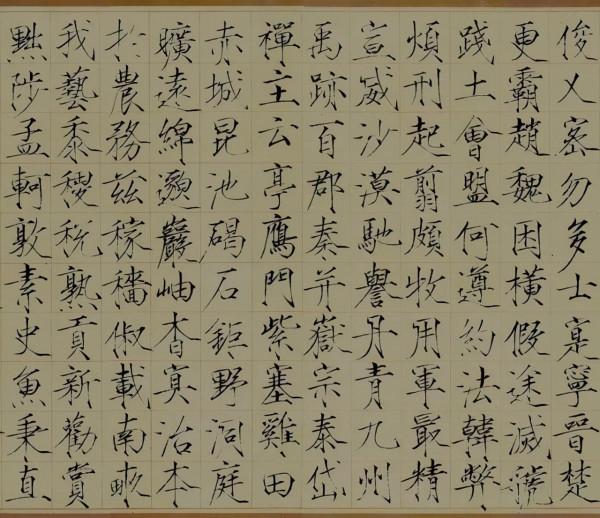 俊乂密勿多士寔寧晉楚
更霸趙魏困橫假途滅虢
踐土會盟何遵約法韓弊
煩刑起翦頗牧用軍最精
宣威沙漠馳譽丹青九州
禹跡百郡秦并嶽宗泰岱
禪主云亭鷹門紫塞雞田
赤城昆池碣石鉅野洞庭
曠遠綿邈巖岫杳冥治本
於農務茲稼穡俶載南畝
我藝黍稷稅熟貢新勸賞
黜陟孟軻敦素史魚秉直